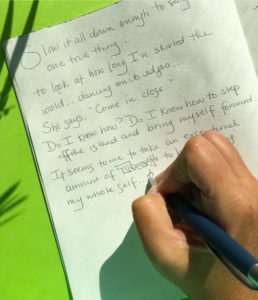 Slow it all down enough to say
one true thing..
to look at how long I've skirted the
world... dancing on its edges...
She says, "Come in close"
Do I know how? Do I know how to step
off the island and bring myself forward
It seems to me to take an excc
amount of to b
my whole self.